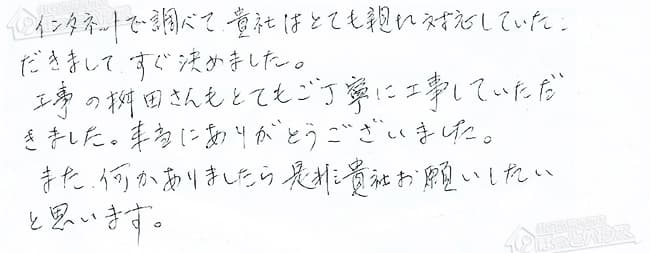 インタネットで調べて、貴社はとても親切れ対応していた
だきまして すぐ決めました。
工事の桝田さんもとてもご丁寧に工事していただ
きました。本当にありがとうございました。
また、何かありましたら是非貴社お願いしたい
と思います。